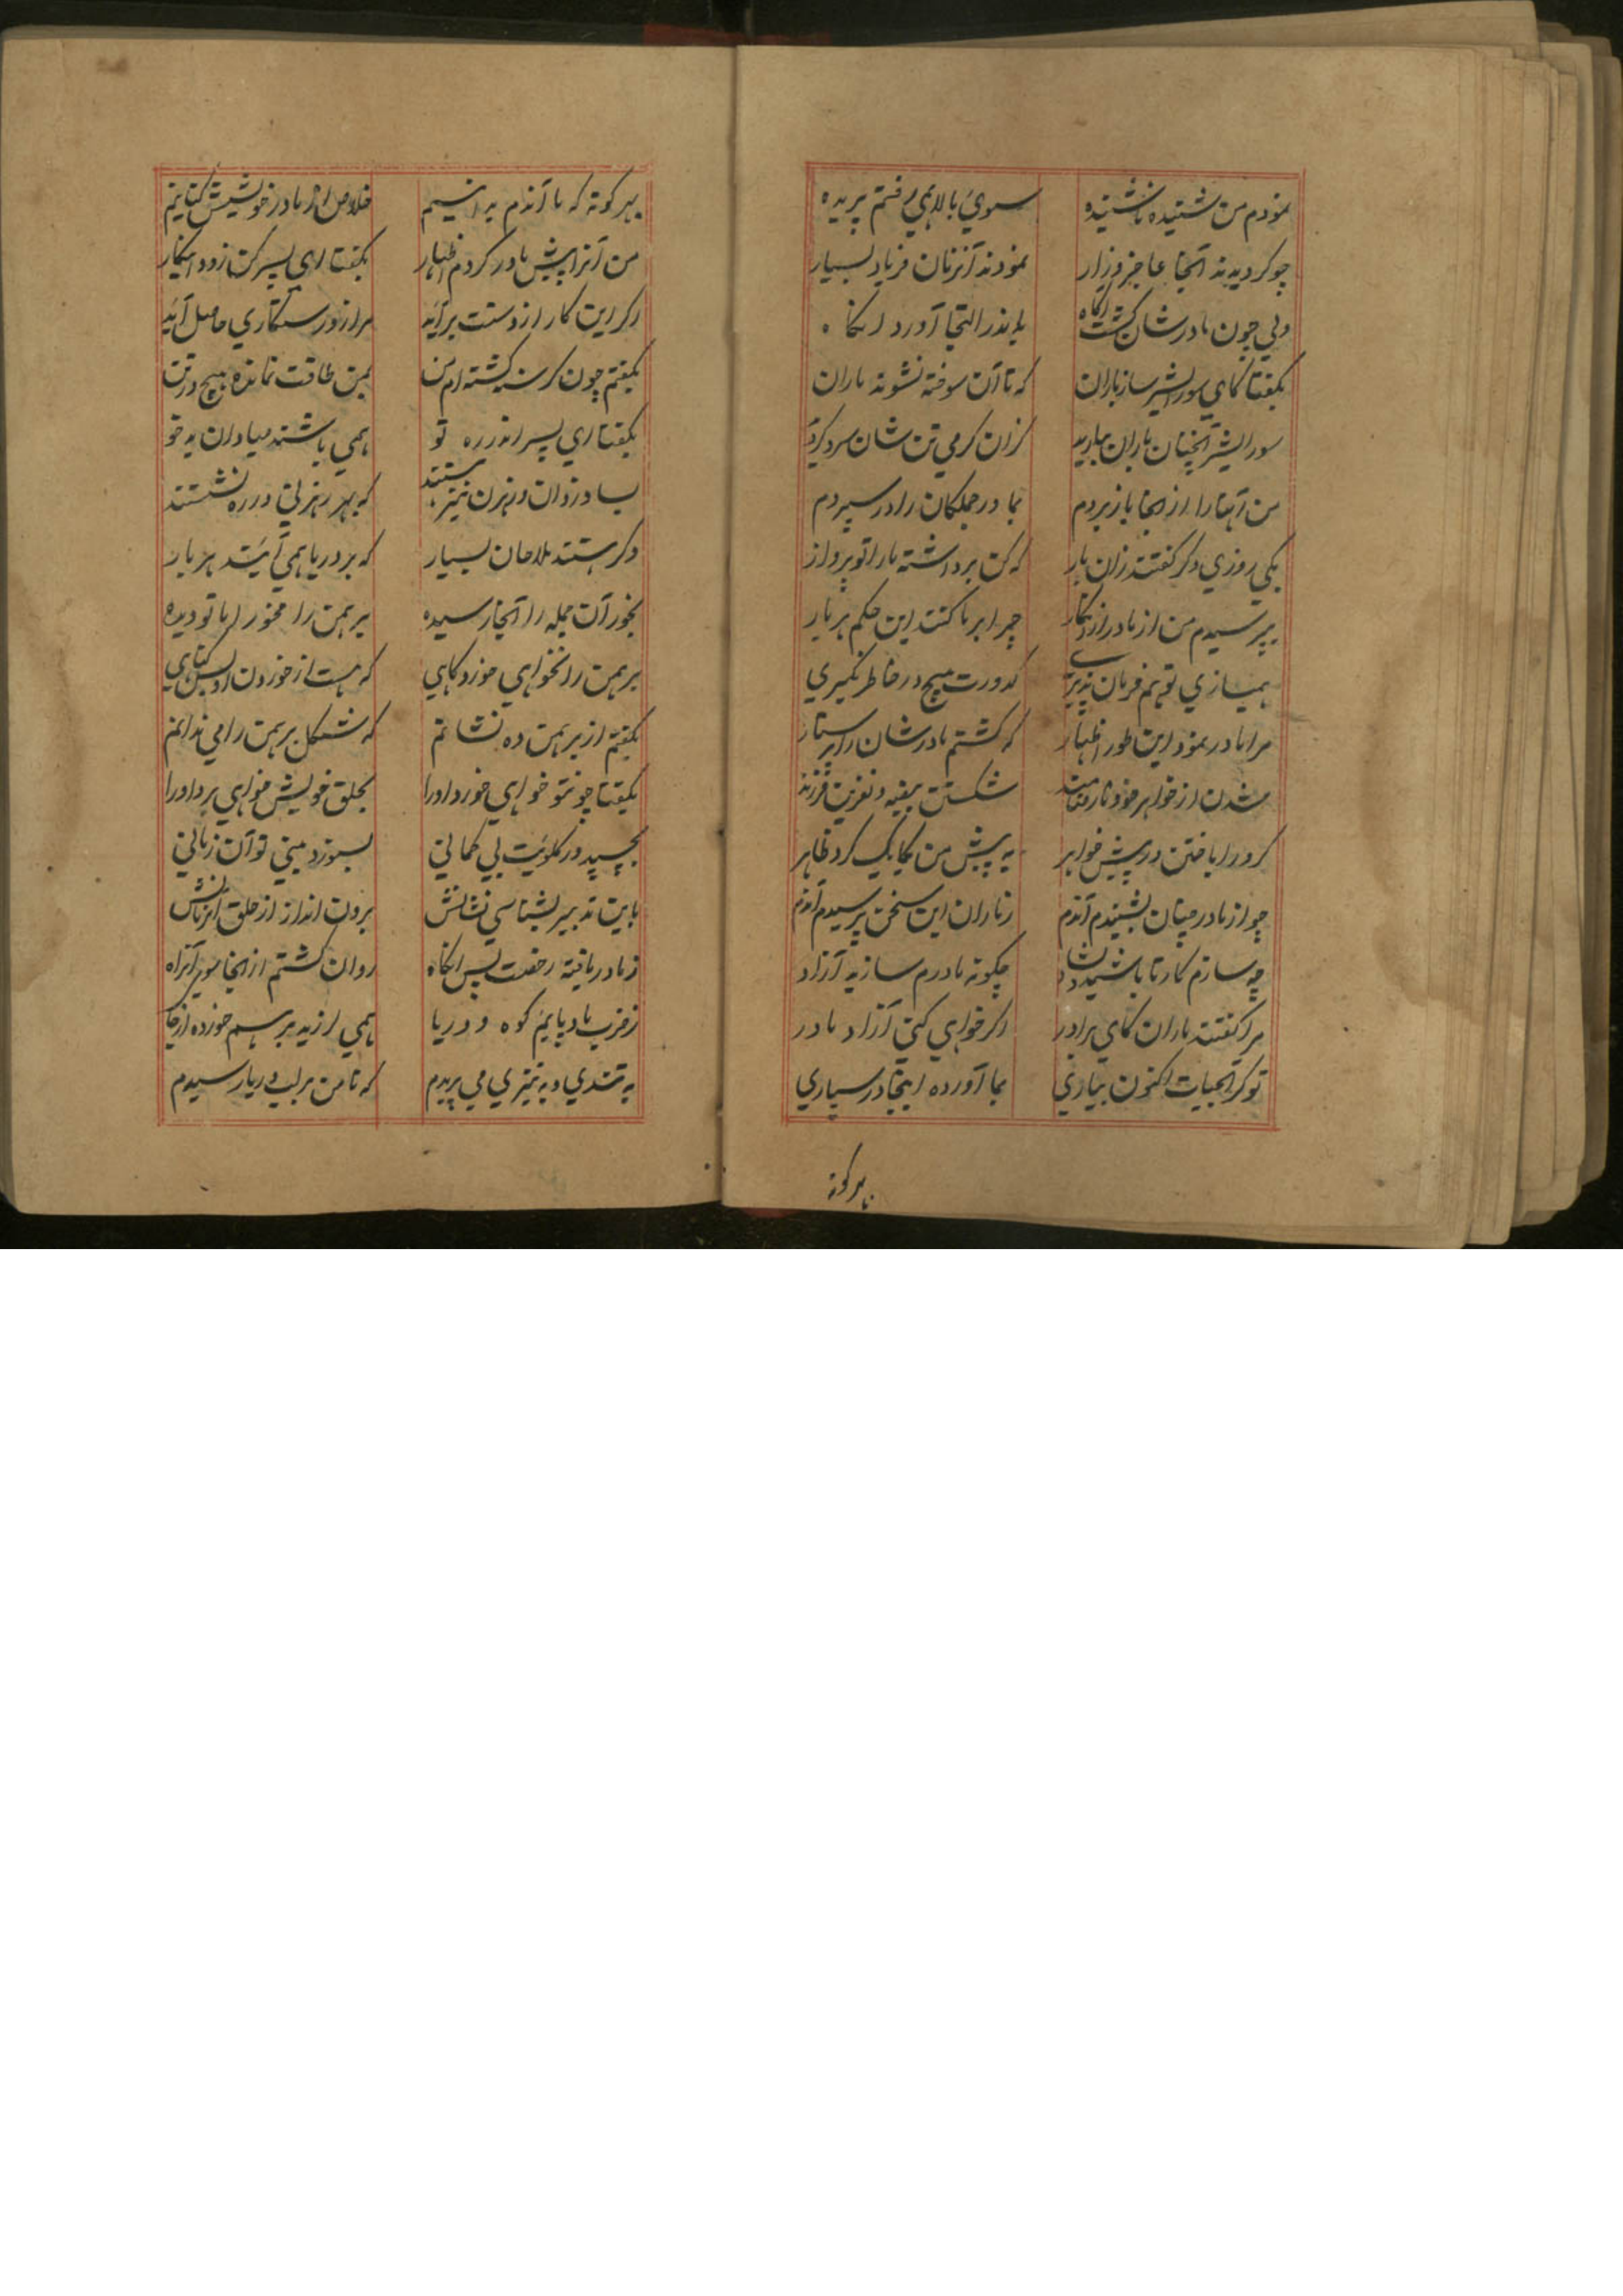 نمودم من شنیده ناشنیده سوي بالا همي رفتم پریده
چو گردیدند آنجا عاجز و زار نمودند آنزمان فریاد بسیار
ولي چون مادرشان گشت آگاه باندر التجا آورد آنگاه
بگفتا کاي سورایشر ساز باران که تا آن سوخته نشوند ماران
سورایشر آنچنان باران بباریدـ کزان گرمي تن شان سرد گردید
من آنها را از آنجا باز بردم بمادر جملگان را در سپردم
یکي روزي دگر گفتند زان بار که کن برداشته ما را تو پرواز
بپرسیدم من از مادر چرا بر ما کنند این حکم هر بار
همیسازي تو هم فرمان پذیري کدورت هیچ در خاطر نگیري
مرا مادر نمود این طور اظهار که گشتم مادرشان را پرستار
شدن از خواهر خود شکستن بیضه و نفرین فرزند
گرو را باختن در پیش خواهر به پیش من یکایک کرد ظاهر
چو از مادر چنان بشنیدم آندم ز ماران این سخن پرسیدم آندم
چه سازم کار تا باشید دلشاد چگونه مادرم سازید آزاد
مرا گفتند ماران کاي برادر اگر خواهي کني آزاد مادر
تو گر آبحیات اکنون بیاري بما آورده اینجا در سپاري
بهر گونه
بهر گونه که ما آندم خلاص از مادر خویشت
من آنرا پیش مادر کردم اظهار بگفتا اي پسر کن زود اینکار
اگر این کار از دستت برآید مرا زود رستگاري حاصل آید
بگفتم چون گرسنه گشته ام من بمن طاقت نمانده هیچ در تن
بگفتا اي پسر اندر ره تو همي باشند صیادان
بسا دزدان و رهزن نیز هستند که بهر رهزني در ره نشستند
دگر هستند ملاحان بسیار که بر دریا همي آیند هر بار
بخور آن جمله را آنجا رسیده برهمن را مخور اما تو دیده
برهمن را نخواهي خورد گاهي که هست از خوردن او بس گناهي
بگفتم از برهمن ده نشانم که شکل برهمن را مي ندانم
بگفتا چونتو خواهي خورد او را بحلق خویش خواهي برد او را
بچسپد در گلویت بي گماني بسوزد بیني تو آن زماني
باین تدبیر بشناسي نشانش برون انداز از حلق آنزمانش
ز مادر یافته رخصت پس آنگاه روان گشتم از آنجا سوي آنراه
ز ضرب باد پایم کوه و دریا همي لرزید برهم خورده از جا
به تندي و به تیزي مي پریدم که تا من بر لب دریا رسیدم